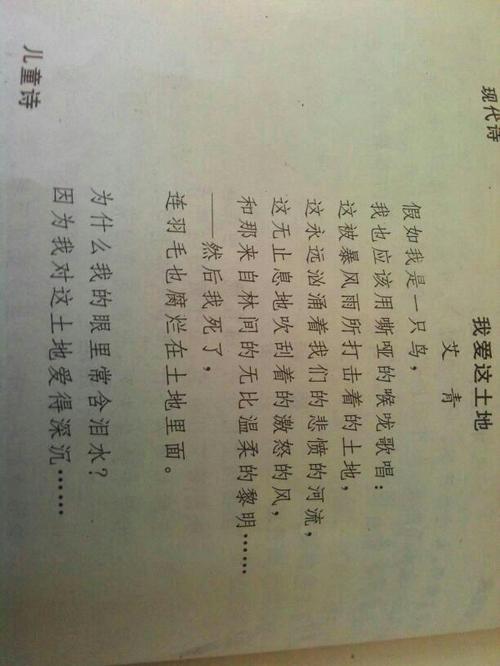 现代诗
我爱这土地
艾 青
假如我是一只鸟，
我也应该用嘶哑的喉咙歌唱：
这被暴风雨所打击着的土地，
这永远汹涌着我们的悲愤的河流，
这无止息地吹刮着的激怒的风，
和那来自林间的无比温柔的黎明……
——然后我死了，
连羽毛也腐烂在土地里面。
为什么我的眼里常含泪水？
因为我对这土地爱得深沉……
儿童诗